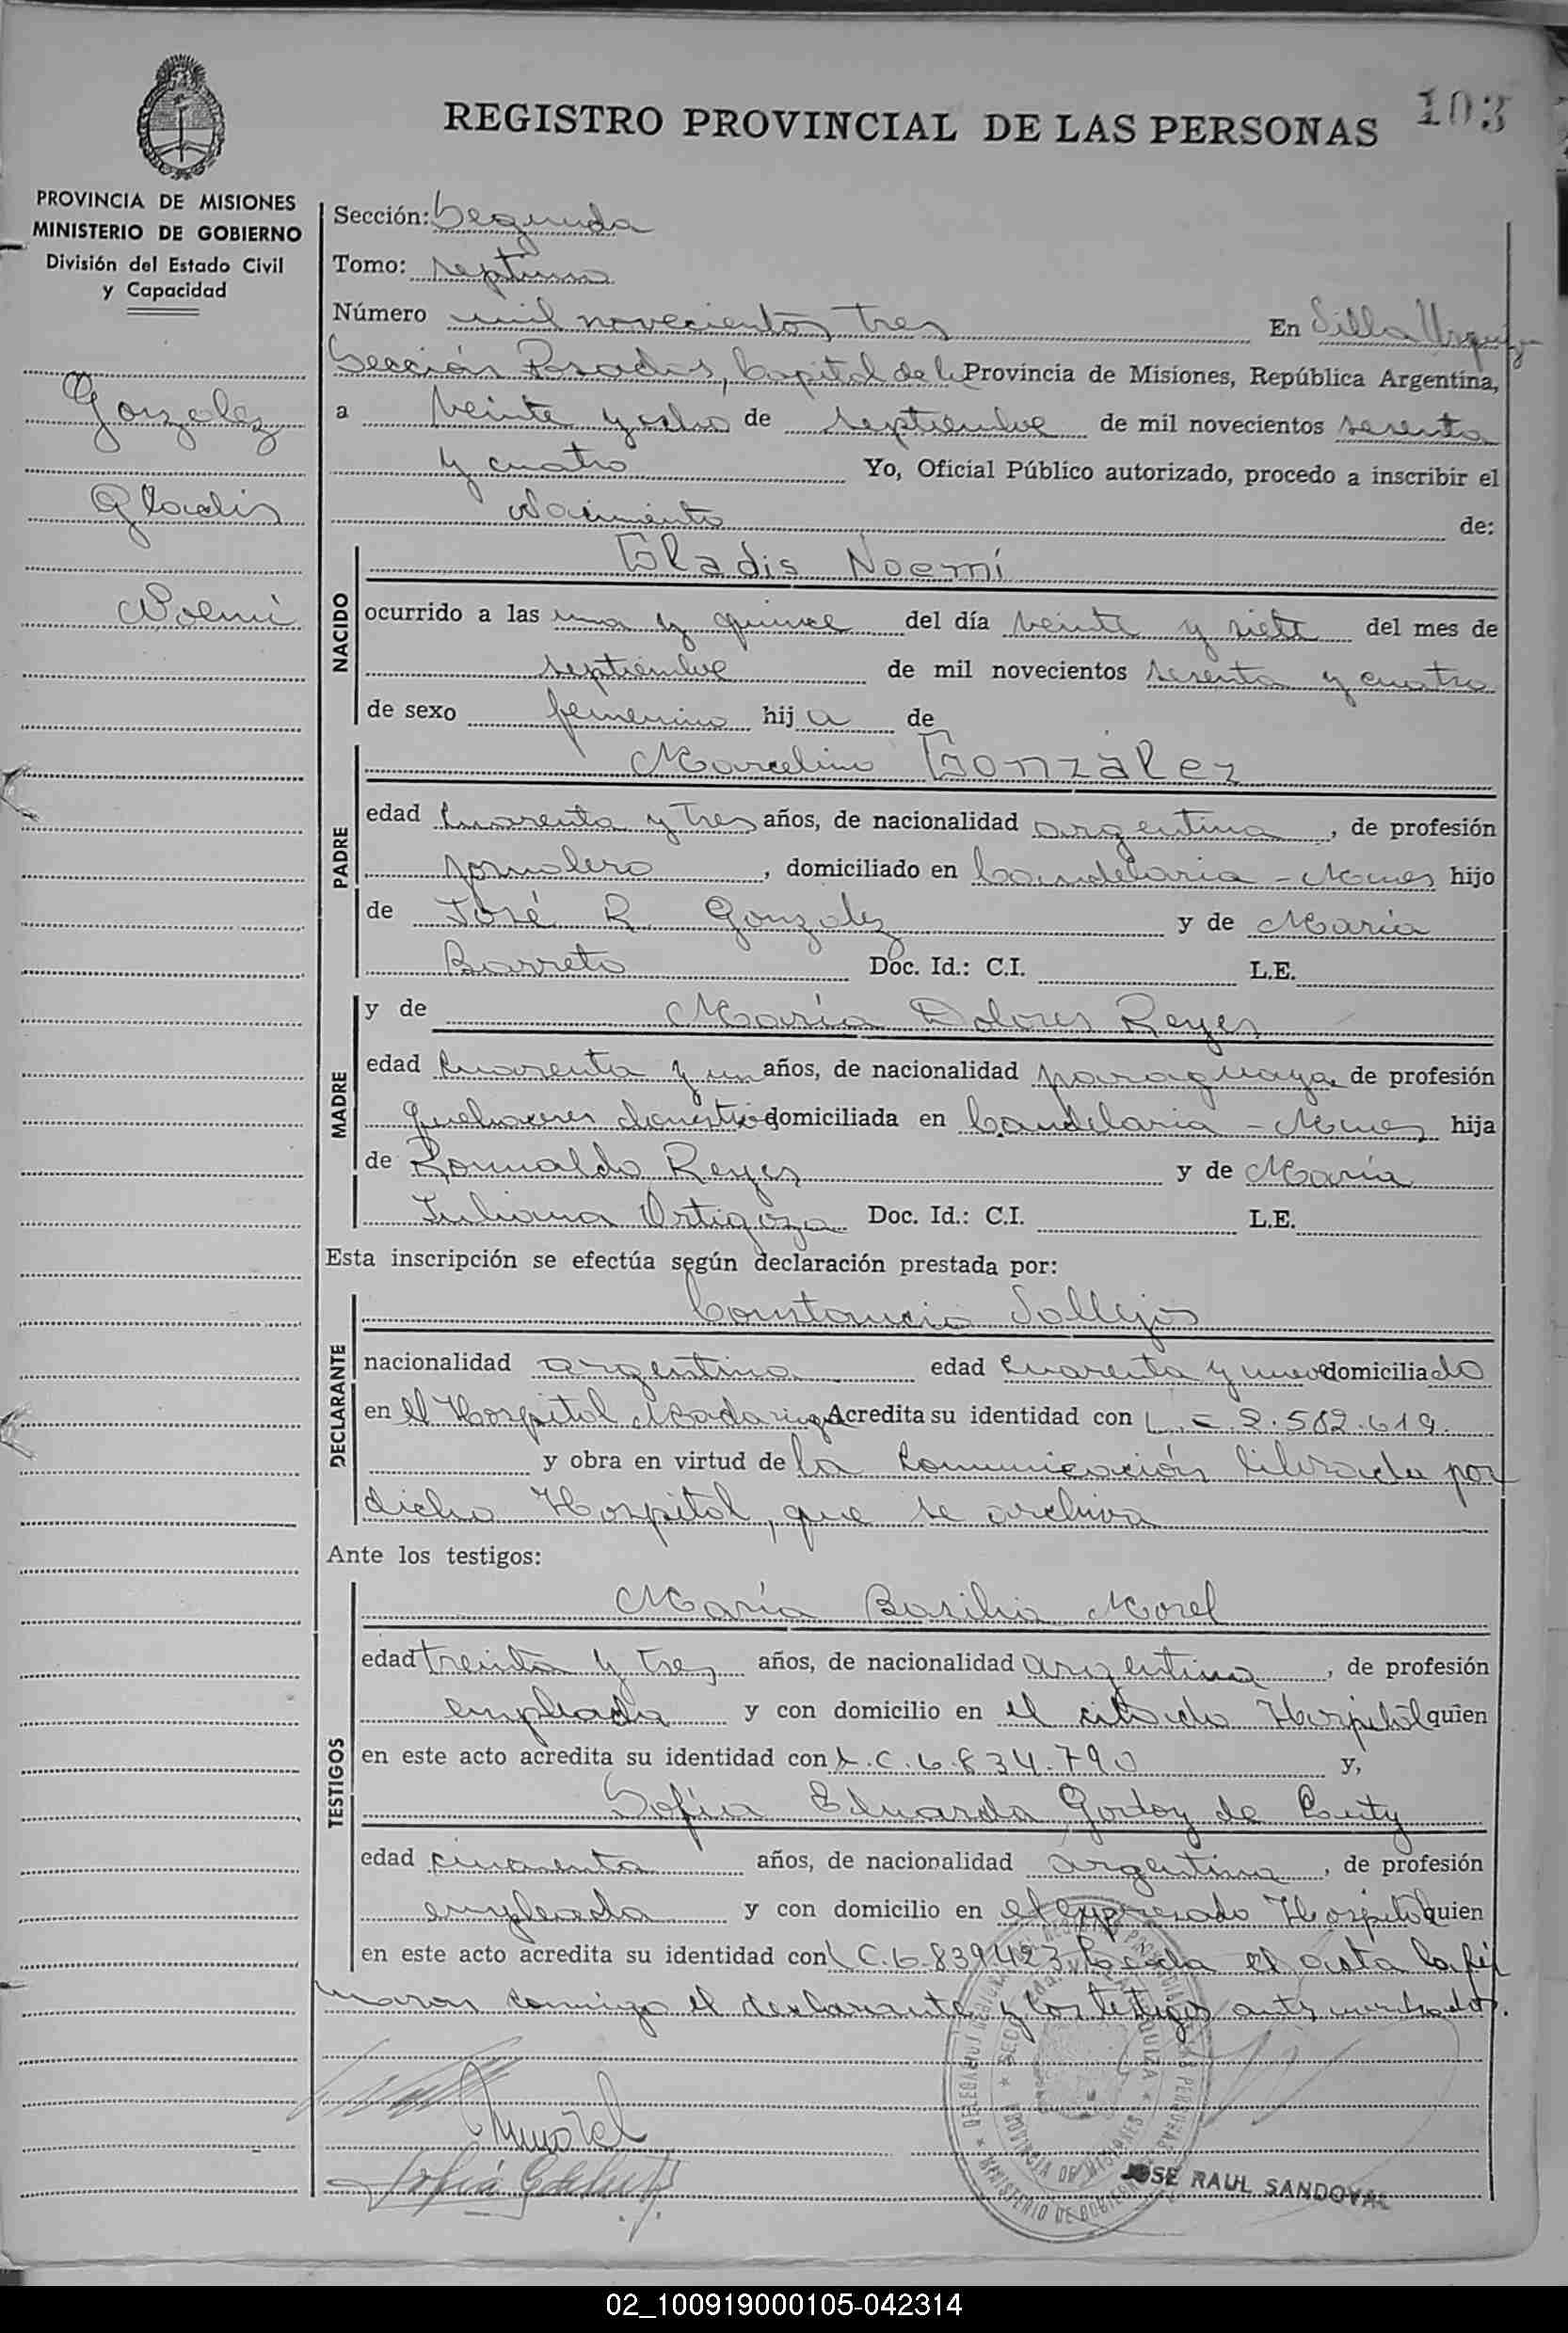 103
REGISTRO PROVINCIAL DE LAS PERSONAS
PROVINCIA DE MISIONES
MINISTERIO DE GOBIERNO
División del Estado Civil
y Capacidad
Gonzalez
Gladis
Noemi
Sección: Segunda
Tomo: septimo
Número mil novecientos tres En Villa Urquiza
Sección Posadas, Capital de la Provincia de Misiones, República Argentina,
a veinte y ocho de septiembre de mil novecientos sesenta
y cuatro Yo, Oficial Público autorizado, procedo a inscribir el
Nacimiento de:
NACIDO
Gladis Noemí
ocurrido a las una y quince del día veinte y siete del mes de
septiembre de mil novecientos sesenta y cuatro
de sexo femenino hija de
PADRE
Marcelino González
edad cuarenta y tres años, de nacionalidad argentina, de profesión
jornalero, domiciliado en Candelaria - Mnes hijo
de José R. Gonzalez y de María
Barreto Doc. Id.: C.I. L.E.
MADRE
y de María Dolores Reyes
edad cuarenta y un años, de nacionalidad paraguaya, de profesión
quehaceres domiciliada en Candelaria - Mnes hija
de Romualdo Reyes y de María
Juliana Ortigoza Doc. Id.: C.I. L.E.
Esta inscripción se efectúa según declaración prestada por:
DECLARANTE
Constancio Vallejos
nacionalidad argentina edad cuarenta y nueve domiciliado
en el Hospital Madariaga Acredita su identidad con L.E 2.582.619.
y obra en virtud de la comunicación librada por
dicho Hospital, que se archiva
Ante los testigos:
TESTIGOS
María Basilia Morel
edad treinta y tres años, de nacionalidad argentina, de profesión
empleada y con domicilio en el citado Hospital quien
en este acto acredita su identidad con L.C. 6.834.790 y,
Sofía Eduarda Godoy de
edad cincuenta años, de nacionalidad argentina, de profesión
empleada y con domicilio en el expresado Hospital quien
en este acto acredita su identidad con L.C. 6.839.423. Leída el acta la fir
maron conmigo el declarante y los testigos antes mencionados.
MMorel
Sofía
JOSE RAUL SANDOVAL
02_100919000105-042314